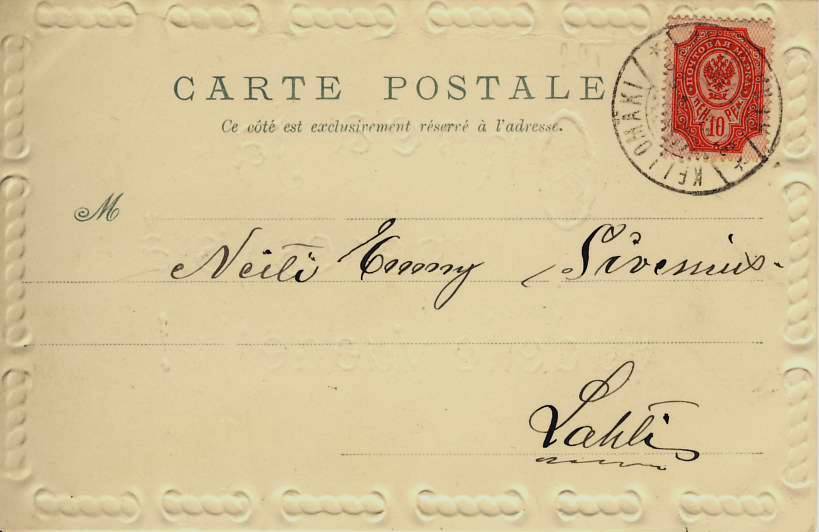 CARTE POSTALE
Ce côté est exclusivement réservé à l'adresse.
ПОЧТОВАЯ МАРКА
10
KELLOMÄKI
M
Neiti Emmy Sivenius.
Lahti